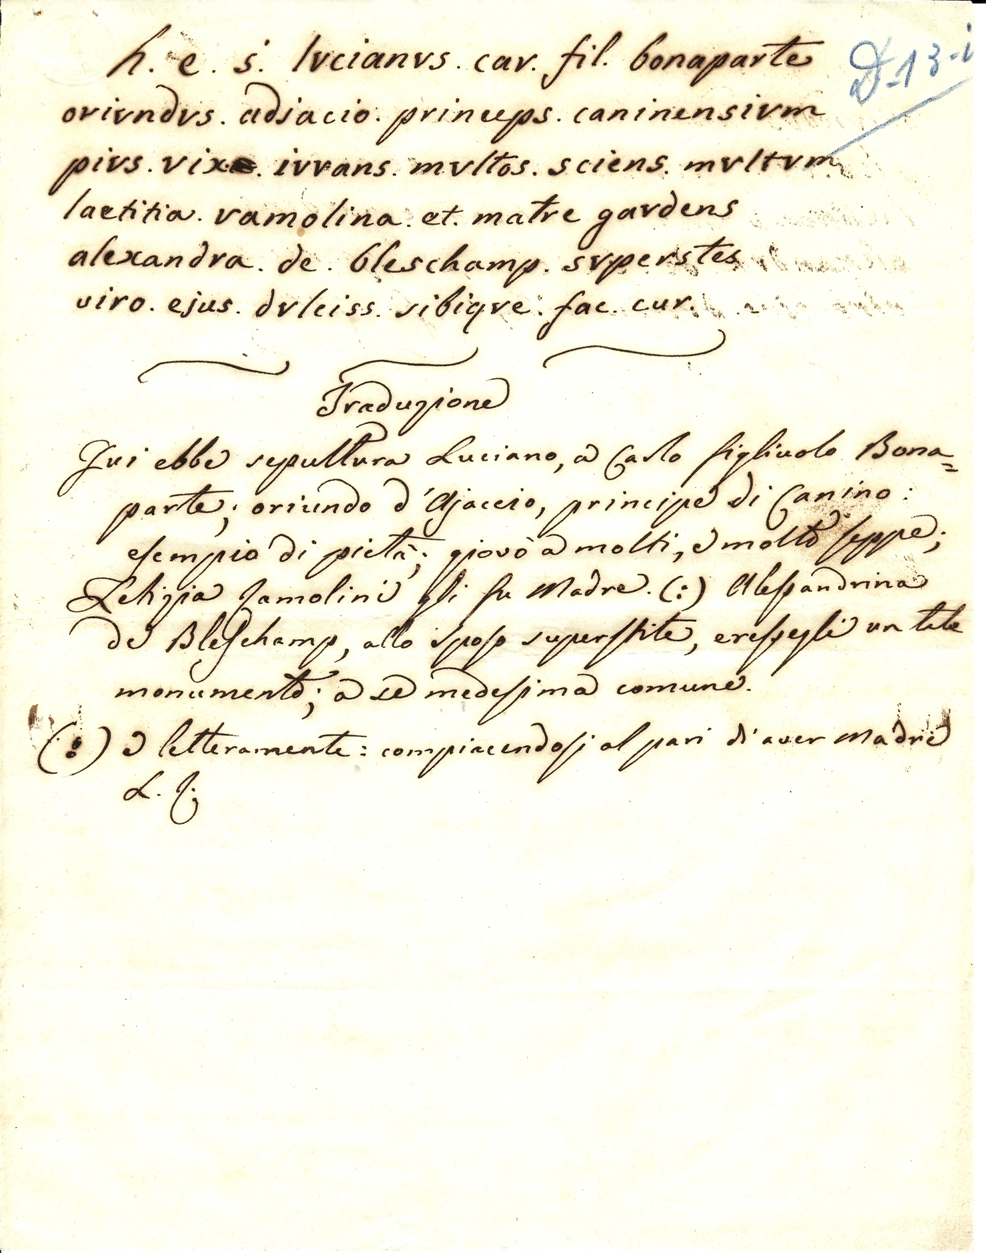 h. e. s. lvcianvs. car. fil. bonaparte
D-13-i
orivndvs. adjacio. princeps. caninensivm
pivs. vix. ivvans. mvltos. sciens. mvltvm
laetitia. ramolina. et. matre gavdens
alexandra. de. bleschamp. svperstes
viro. ejus. dvlciss. sibiqve. fac. cur.
Traduzione
Qui ebbe sepultura Luciano, a Carlo figliuolo Bona=
parte; oriundo d'Ajaccio, principe di Canino:
esempio di pietà; giovò a molti, e molto seppe;
Letizia Ramolini gli fu Madre. (:) Alessandrina
de Bleschamp, allo sposo superstite, eressegli un tale
monumento; a se medesima comune.
(:) O letteramente: compiacendosi al pari di aver Madre
L. R.